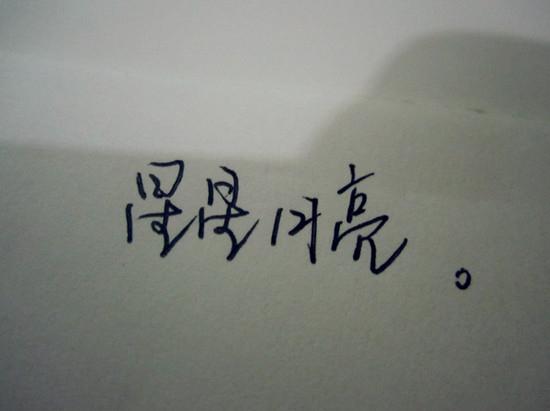 星星月亮。